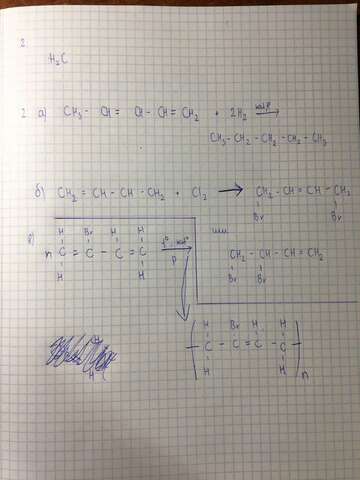 2.
H₂C
2 а) CH₃ - CH = CH - CH = CH₂ + 2H₂ кат, P →
CH₃ - CH₂ - CH₂ - CH₂ - CH₃
б) CH₂ = CH - CH - CH₂ + Cl₂ → CH₂ - CH = CH - CH₂
Br Br
или
CH₂ - CH - CH = CH₂
Br Br
в) H Br H H
n C = C - C = C t°, кат →
H H P
H Br H H
( - C - C = C - C - ) n
H H